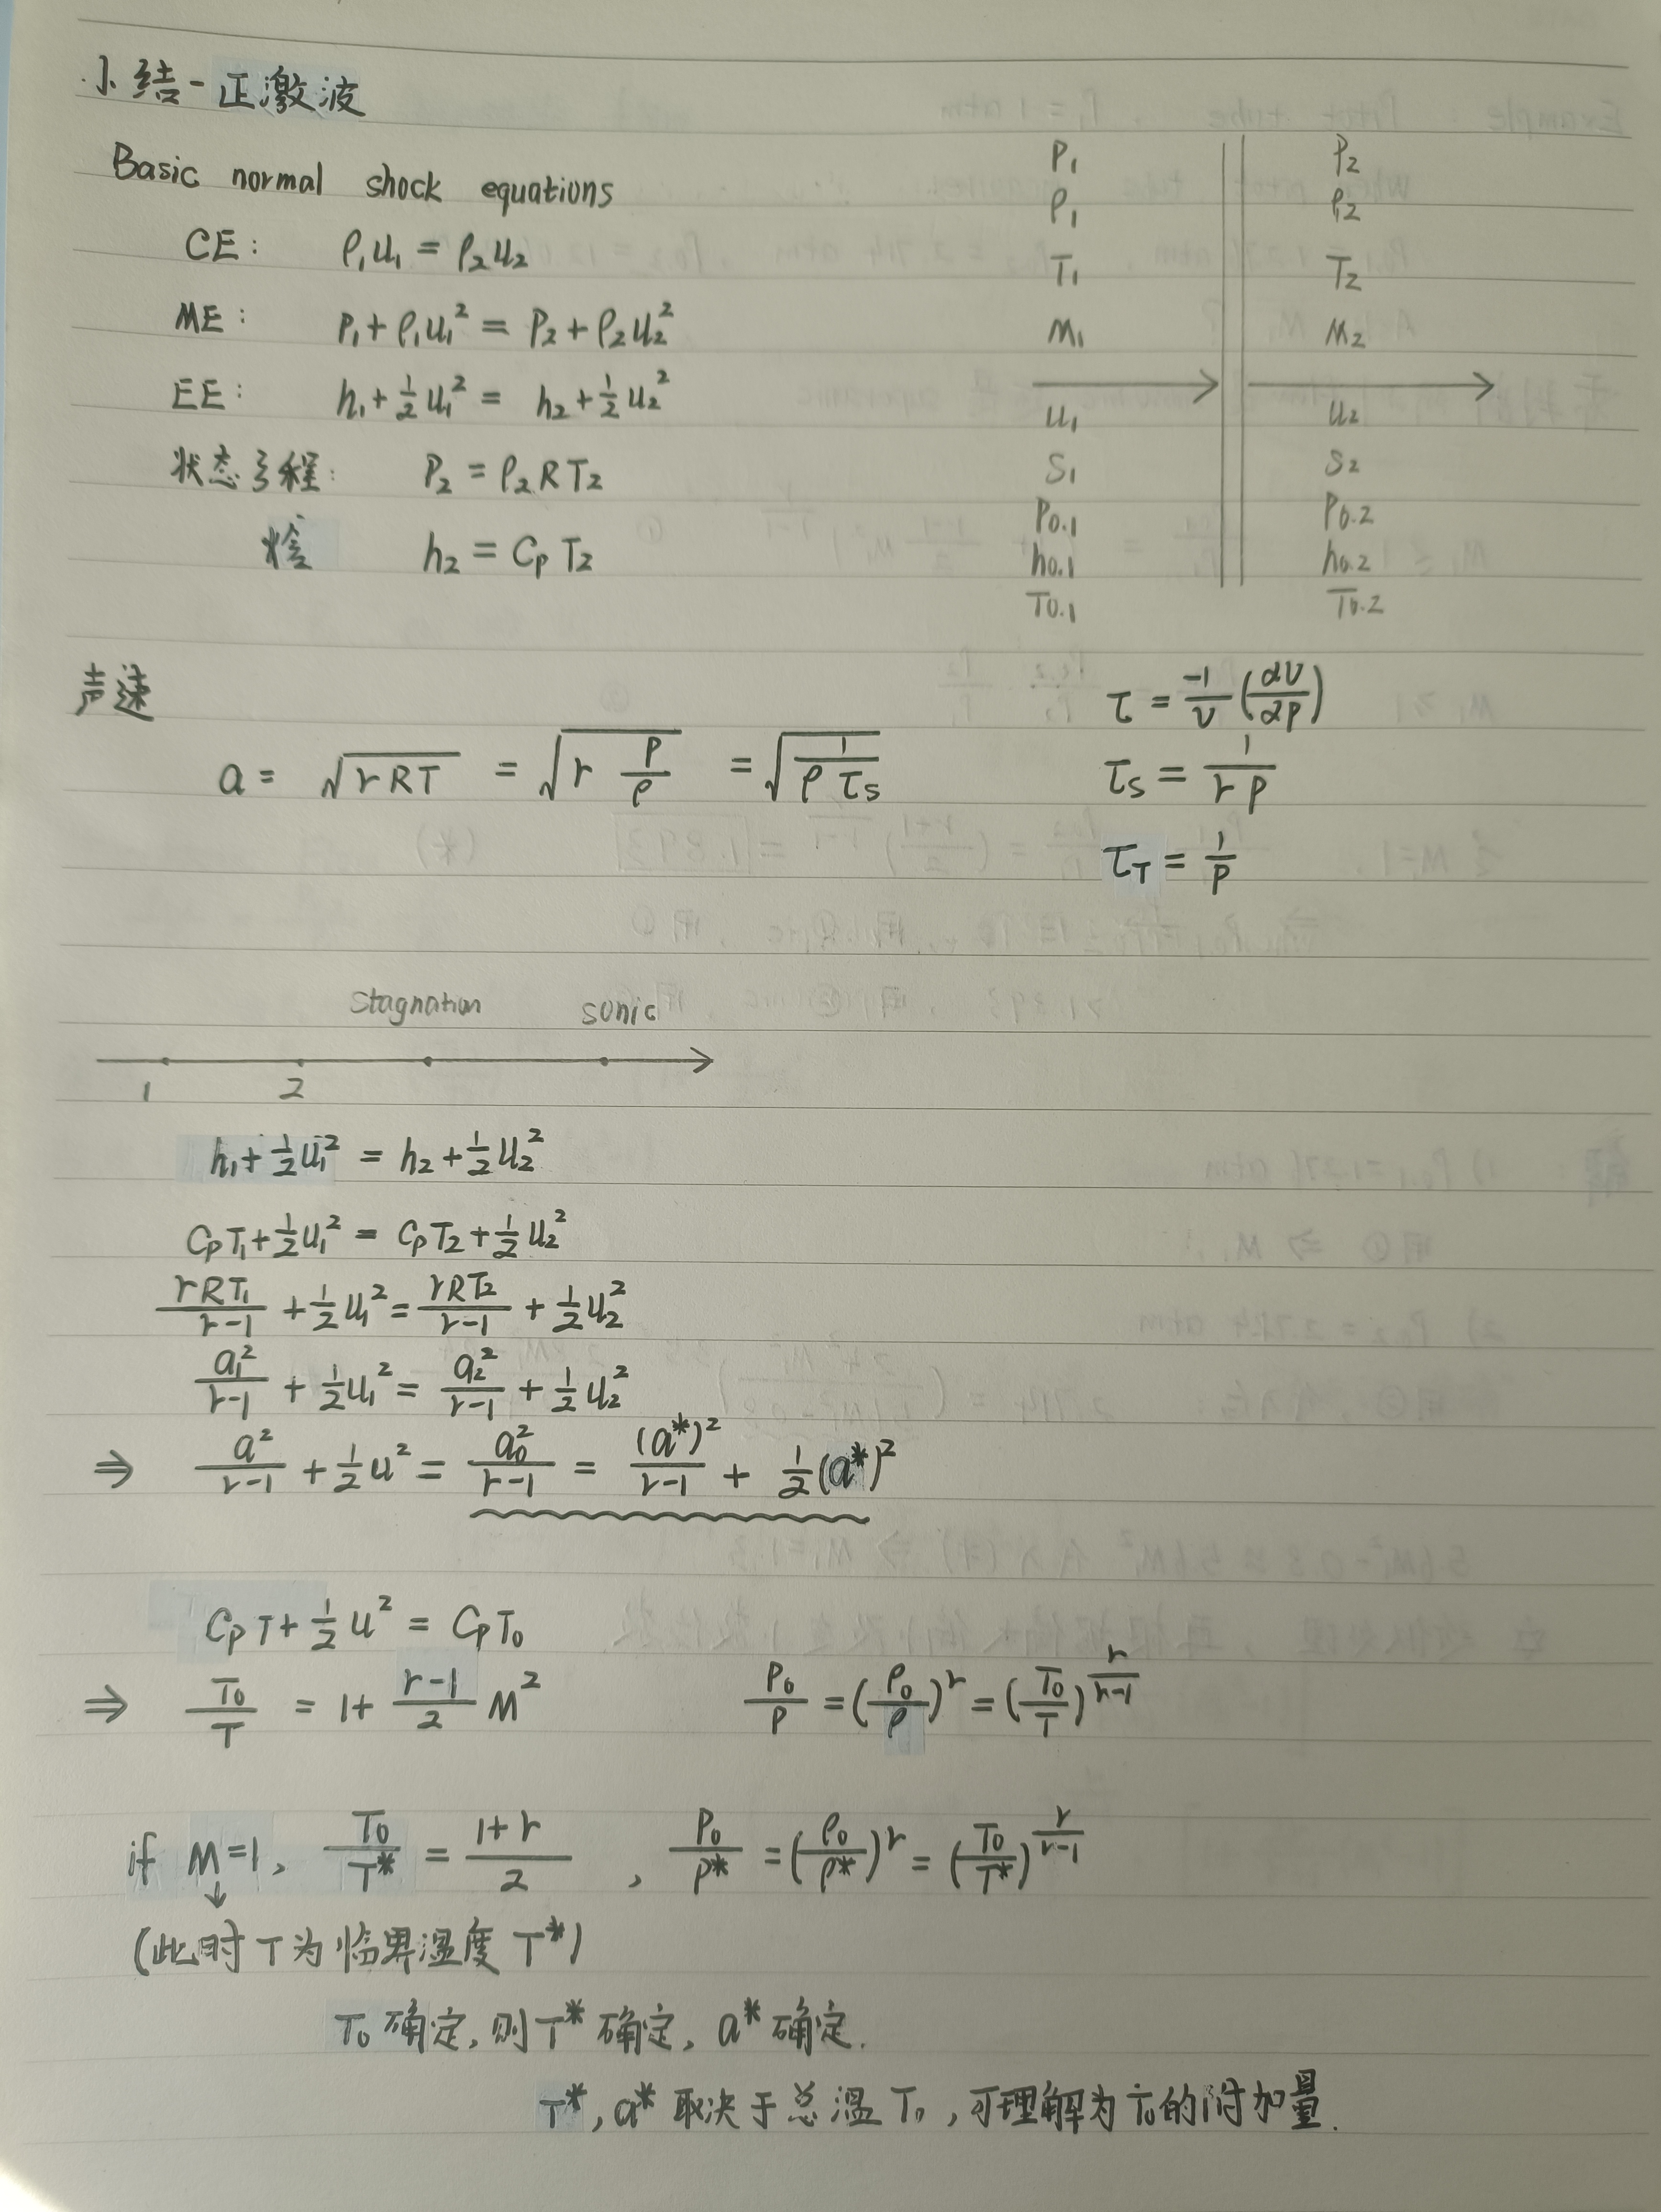 小结-正激波
Basic normal shock equations
CE: ρ₁u₁ = ρ₂u₂
ME: P₁+ρ₁u₁² = P₂+ρ₂u₂²
EE: h₁+½u₁² = h₂+½u₂²
状态方程: P₂ = ρ₂RT₂
焓 h₂ = CpT₂
P₁ P₂
ρ₁ ρ₂
T₁ T₂
M₁ M₂
u₁ u₂
S₁ S₂
P0.1 P0.2
h0.1 h0.2
T0.1 T0.2
声速
a = √(rRT) = √(r P/ρ) = √(1/(ρτs))
τ = -1/v (dv/dp)
τs = 1/(rP)
τT = 1/P
stagnation sonic
1 2
h₁+½u₁² = h₂+½u₂²
CpT₁+½u₁² = CpT₂+½u₂²
rRT₁/(r-1) + ½u₁² = rRT₂/(r-1) + ½u₂²
a₁²/(r-1) + ½u₁² = a₂²/(r-1) + ½u₂²
⇒ a²/(r-1) + ½u² = a₀²/(r-1) = (a*)²/(r-1) + ½(a*)²
CpT+½u² = CpT₀
⇒ T₀/T = 1+ (r-1)/2 M² P₀/P = (ρ₀/ρ)^r = (T₀/T)^(r/(r-1))
if M=1, T₀/T* = (1+r)/2 , P₀/P* = (ρ₀/ρ*)^r = (T₀/T*)^(r/(r-1))
(此时T为临界温度T*)
T₀确定,则T*确定, a*确定.
T*, a*取决于总温T₀,可理解为T₀的附加量.